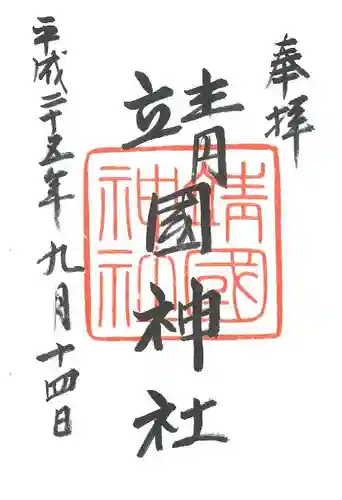 奉拝
靖國神社
靖國
神社
平成二十五年九月十四日